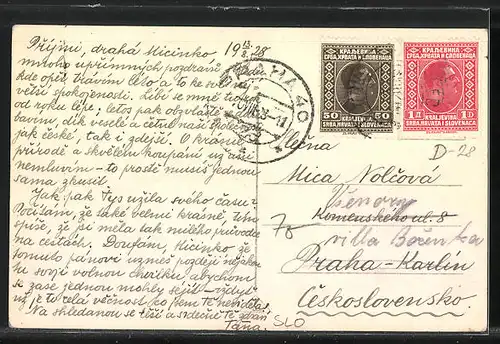 Přijmi, drahá Micinko 19 13/8. 28
mnoho upřímných pozdravů
kde opět trávím léto a to ke své nej
větší spokojenosti. Líbí se mně tu rok
od roku lépe, letos pak obzvláště
bavím, dík veselé a četné naší společnosti
jak české, tak i zdejší. O krásné
přírodě a skvělém koupání už ani
nemluvím - to prostě musíš jednou
sama zkusit.
Jak pak Tys užila svého času?
Počítám, že také velmi krásně, tím
spíše, že jsi měla tak milého průvodce
na cestách. Doufám, Micinko, že
tomuto pánovi uzmeš později nějakou
tu svoji volnou chvilku, abychom
se zase jednou mohly sejít - vždyť
už je to celá věčnost co jsem tě neviděla.
Na shledanou se těší a srdečně tě zdraví
Táňa.
КРАЉЕВИНА
СРБА, ХРВАТА И СЛОВЕНАЦА
50 50
KRALJEVINA
SRBA, HRVATA I SLOVENACA
КРАЉЕВИНА
СРБА, ХРВАТА И СЛОВЕНАЦА
1 Д 1 D
KRALJEVINA
SRBA, HRVATA I SLOVENACA
PRAHA 40
D-28
Slečna
Mica Nolčová
Komenského ul. 8
villa Boženka
Praha - Karlín
Československo.
SLO